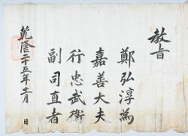 教旨
鄭弘淳爲
嘉善大夫
行忠武衛
副司直者
乾隆二十五年十二月　日